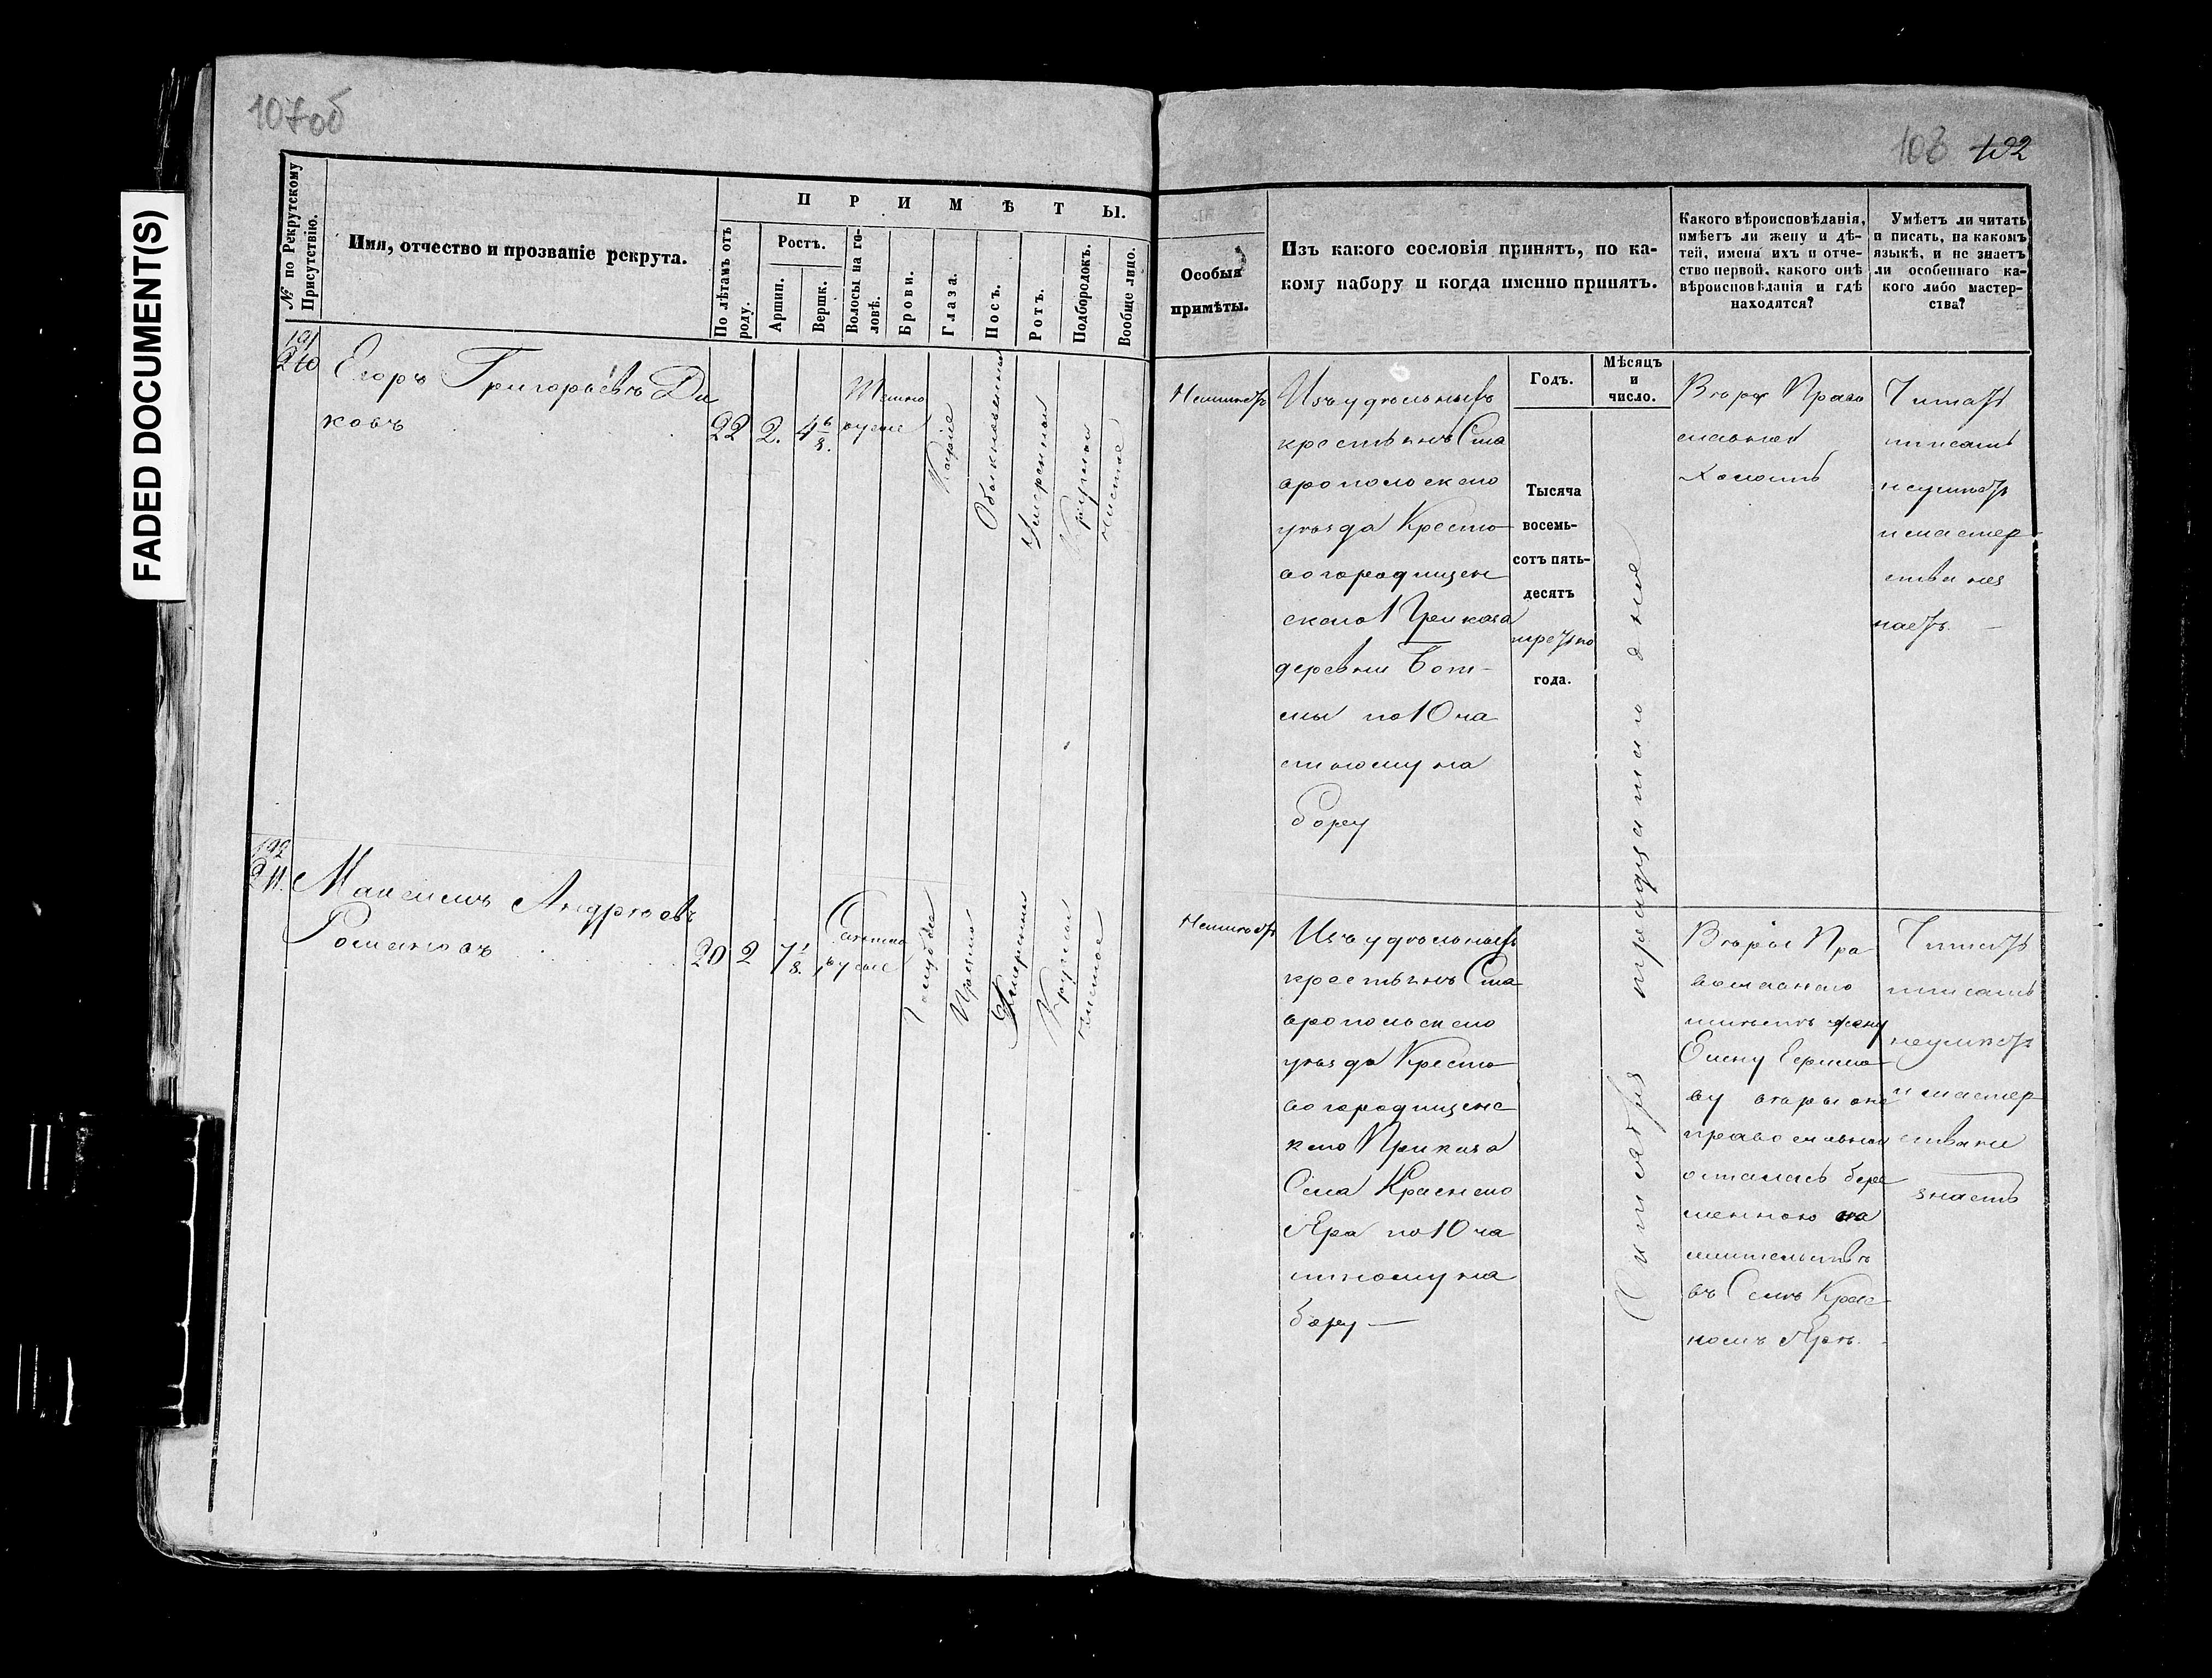 FADED DOCUMENT(S)
107об
№ по Рекрутскому
Присутствію.
Имя, отчество и прозваніе рекрута.
ПРИМѢТЫ.
По лѣтамъ отъ
роду.
Ростъ.
Аршин.
Вершк.
Волосы на го-
ловѣ.
Брови.
Глаза.
Носъ.
Ротъ.
Подбородокъ.
Вообще лицо.
191
210
Егоръ Григорьевъ Ди
ковъ
22
2.
4 6/8.
Темно
русые
Каріе
Обыкновенный
Умеренный
Круглый
чистое
192
211.
Максимъ Андреевъ
Романовъ
20
2
7 1/8.
Светло
русые
Голубые
Прямой
Умеренный
Круглый
чистое
108 102
Особыя
примѣты.
Изъ какого сословія принятъ, по ка-
кому набору и когда именно принятъ.
Какого вѣроисповѣданія,
имѣетъ ли жену и дѣ-
тей, имена ихъ и отче-
ство первой, какого онѣ
вѣроисповѣданія и гдѣ
находятся?
Умѣетъ ли читать
и писать, на какомъ
языкѣ, и не знаетъ
ли особеннаго ка-
кого либо мастер-
ства?
Годъ.
Мѣсяцъ
и
число.
Неимѣетъ
Изъ удѣльныхъ
крестьянъ Ста
вропольскаго
уѣзда Кресто
вогородищен
скаго Приказа
деревни
по 10 ча
стному на
бору
Тысяча
восемь-
сотъ пять-
десятъ
третьяго
года.
Сентября тридцатаго дня
Вѣры Право
славной
Холостъ
Читать
писать
неумѣетъ
и мастер
ства нез
наетъ. —
Неимѣетъ
Изъ удѣльныхъ
крестьянъ Ста
вропольскаго
уѣзда Кресто
вогородищенс
каго Приказа
Села Краснаго
Яра по 10 ча
стному на
бору —
Вѣры Пра
вославной
имѣетъ жену
Елену Ефимо
ву вѣры она
православной
осталась бере
менною на
жительствѣ
въ Селѣ Крас
номъ Ярѣ.
Читать
писать
неумѣетъ
и мастер
ства не
знаетъ